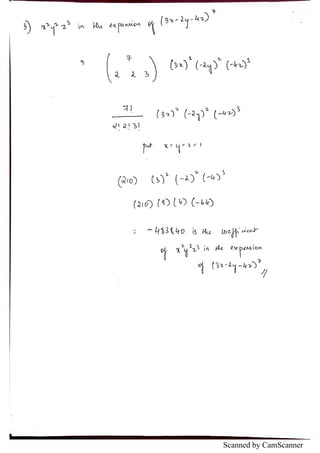 3) x² y² z³ in the expansion of (3x-2y-4z)⁷
⇒ ( 7
2 2 3 ) (3x)² (-2y)² (-4z)³
7!
2! 2! 3! (3x)² (-2y)² (-4z)³
put x=y=z=1
(210) (3)² (-2)² (-4)³
(210) (9) (4) (-64)
= -483840 is the coefficient
of x²y²z³ in the expension
of (3x-2y-4z)⁷ //
Scanned by CamScanner